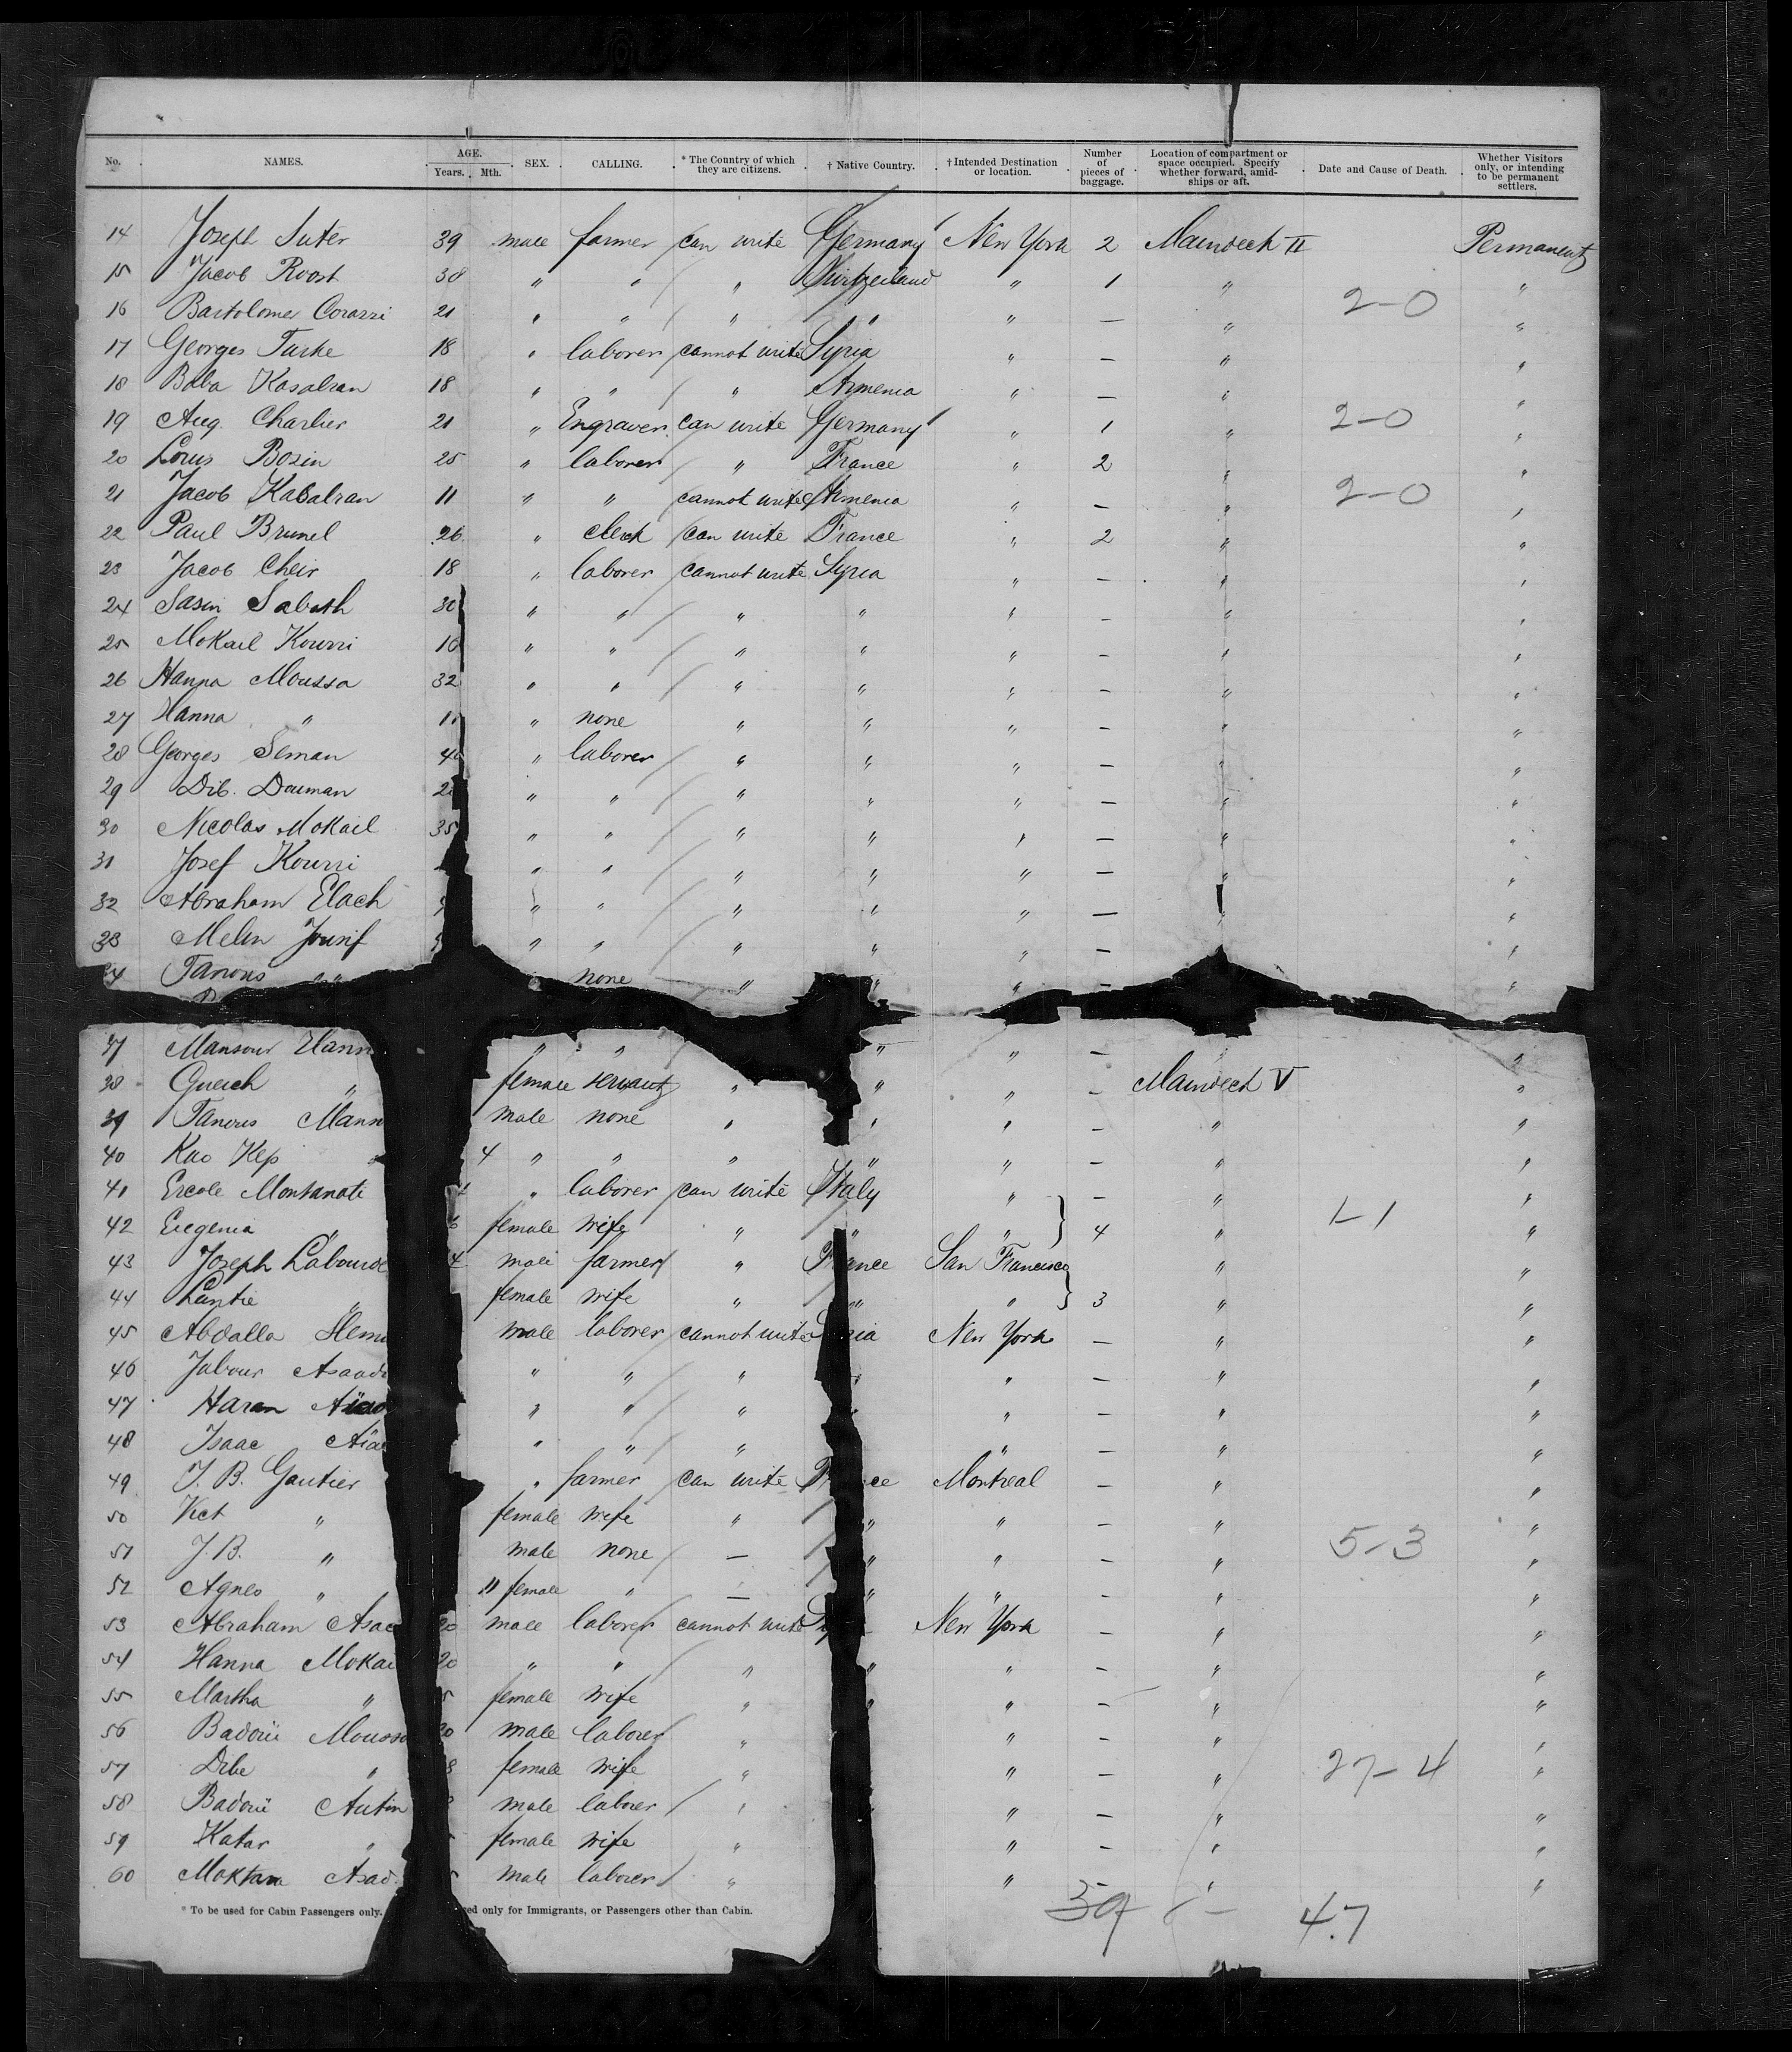 No. NAMES. AGE. Years. Mth. SEX. CALLING. * The Country of which they are citizens. † Native Country. † Intended Destination or location. Number of pieces of baggage. Location of compartment or space occupied. Specify whether forward, amidships or aft. Date and Cause of Death. Whether Visitors only, or intending to be permanent settlers.
14 Joseph Suter 39 male farmer can write Germany New York 2 Maindeck II Permanent
15 Jacob Roost 38 " " " Switzerland " 1 " "
16 Bartolomer Corazzi 21 " " " " " — " 2-0 "
17 Georges Turke 18 " laborer cannot write Syria " — " "
18 Baba Kasabran 18 " " " Armenia " — " "
19 Aug. Charlier 21 " Engraver can write Germany " 1 " 2-0 "
20 Louis Bozin 25 " laborer " France " 2 " "
21 Jacob Kabalran 11 " " cannot write Armenia " — " 2-0 "
22 Paul Brunel 26 " clerk can write France " 2 " "
23 Jacob Cheir 18 " laborer cannot write Syria " — " "
24 Sasin Sabath 30 " " " " " — " "
25 Mokail Kourri 16 " " " " " — " "
26 Hanna Moussa 32 " " " " " — " "
27 Hanna " " none " " " — " "
28 Georges Seman " laborer " " " — " "
29 Dib. Douman " " " " " — " "
30 Nicolas Mokail 35 " " " " " — " "
31 Josef Kourri " " " " " — " "
32 Abraham Elach " " " " " — " "
33 Melin Jousif " " " " " — " "
34 Tanous " none " " " — "
37 Mansour Hann " " " " — " "
38 Gueich " female servant " " " — Maindeck V "
39 Tanous Mann male none " " " — " "
40 Kao Kep 4 " " " " " — " "
41 Ercole Montanate " laborer can write Italy " — " "
42 Eugenia " female wife " " " 4 " 1-1 "
43 Joseph Labourde male farmer " France San Francisco " "
44 Lantie " female wife " " " 3 " "
45 Abdalla Hem male laborer cannot write Syria New York — " "
46 Jabour Asaad " " " " — " "
47 Haran " " " " — " "
48 Isaac " " " " — " "
49 J. B. Gautier " farmer can write France Montreal — " "
50 Vict " female wife " " " — " "
51 J. B. " male none — " " — " 5-3 "
52 Agnes " 11 female " — " " — " "
53 Abraham Asa 20 male laborer cannot write Sy New York — " "
54 Hanna Moka 20 " " " " " — " "
55 Martha " female wife " " " — " "
56 Badoui Mouss male laborer " " — " "
57 Dibe " female wife " " — " 27-4 "
58 Badoui Autin male laborer " " — " "
59 Katar " female wife " " — " "
60 Moktara Asad male laborer " " — " "
* To be used for Cabin Passengers only. ed only for Immigrants, or Passengers other than Cabin.
39 8- 47